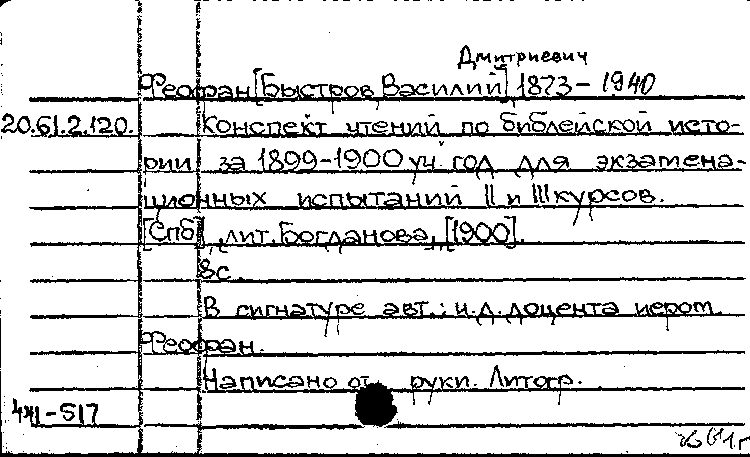 Дмитриевич
Феофан [Быстров, Василий], 1873-1940
20.61.2.120. Конспект чтений по библейской исто-
рии за 1899-1900 уч. год для экзамена-
ционных испытаний II и III курсов.
[Спб], лит. Богданова, [1900].
8с.
В сигнатуре авт.: и.д. доцента иером.
Феофан.
Написано от руки. Литогр.